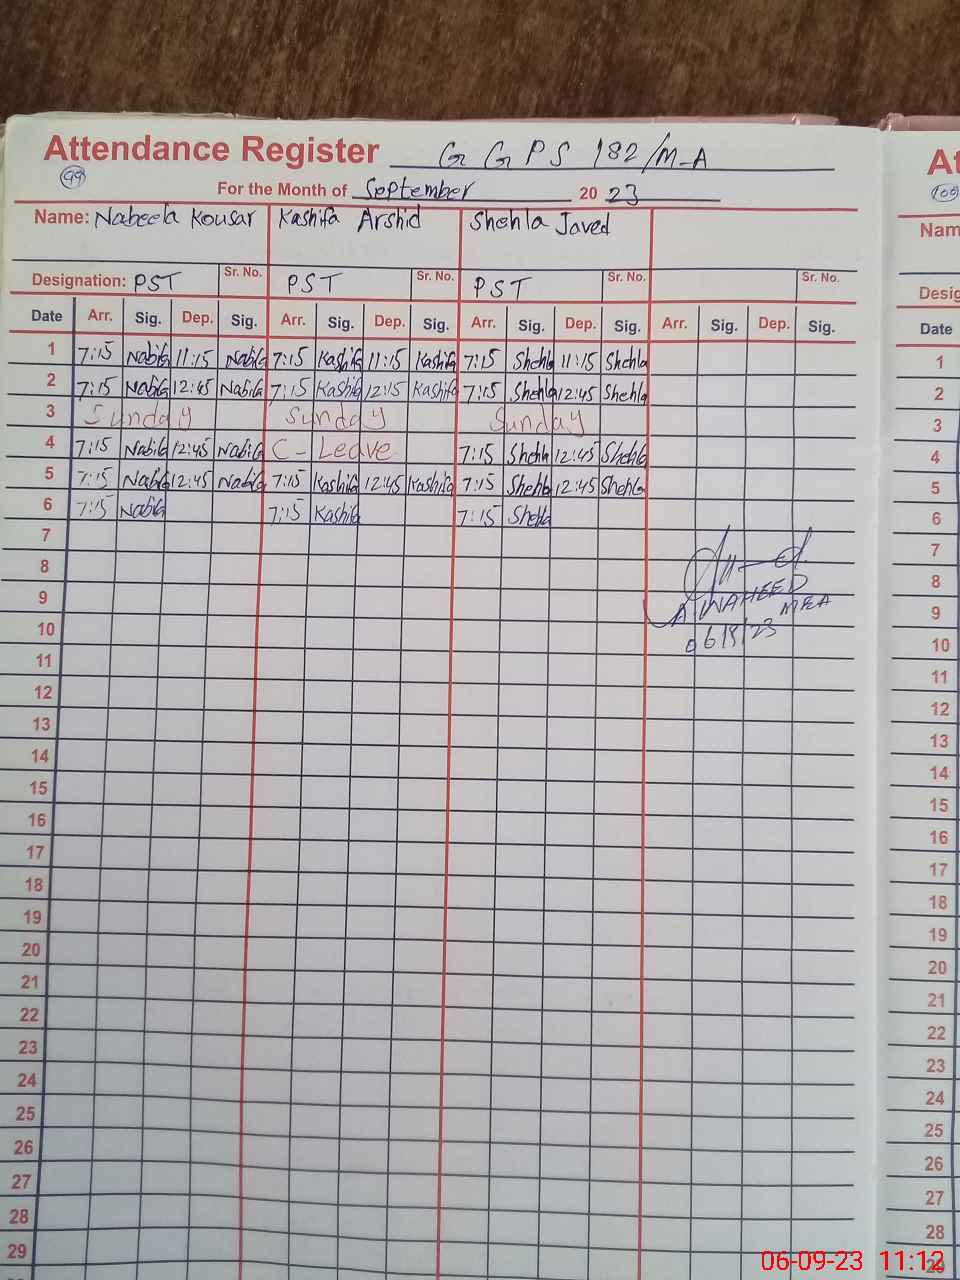 Attendance Register G G P S 182/M-A
99
For the Month of September 20 23
Name: Nabeela Kousar Kashifa Arshid Shehla Javed
Designation: PST Sr. No. PST Sr. No. PST Sr. No. Sr. No.
Date Arr. Sig. Dep. Sig. Arr. Sig. Dep. Sig. Arr. Sig. Dep. Sig. Arr. Sig. Dep. Sig.
1 7:15 Nabila 11:15 Nabila 7:15 Kashifa 11:15 Kashifa 7:15 Shehla 11:15 Shehla
2 7:15 Nabila 12:45 Nabila 7:15 Kashifa 12:15 Kashifa 7:15 Shehla 12:45 Shehla
3 Sunday Sunday Sunday
4 7:15 Nabila 12:45 Nabila C-Leave 7:15 Shehla 12:45 Shehla
5 7:15 Nabila 12:45 Nabila 7:15 Kashifa 12:45 Kashifa 7:15 Shehla 12:45 Shehla
6 7:15 Nabila 7:15 Kashifa 7:15 Shehla
7
8
9
10
11
12
13
14
15
16
17
18
19
20
21
22
23
24
25
26
27
28
29
A. WAHEED
MEA
06/9/23
At
100
Nam
Desig
Date
1
2
3
4
5
6
7
8
9
10
11
12
13
14
15
16
17
18
19
20
21
22
23
24
25
26
27
28
29
06-09-23 11:12